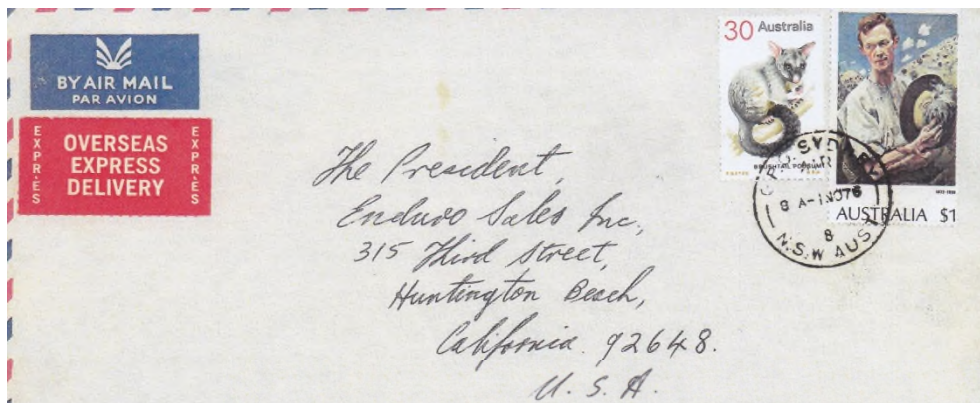 BY AIR MAIL
PAR AVION
EXPRES
OVERSEAS
EXPRESS
DELIVERY
EXPRES
30 Australia
BRUSHTAIL POSSUM
AUSTRALIA $1
SYDNEY
8 A-1NO76
8
N.S.W AUST
The President,
Enduro Sales Inc.,
315 Third Street,
Huntington Beach,
California. 92648.
U. S. A.